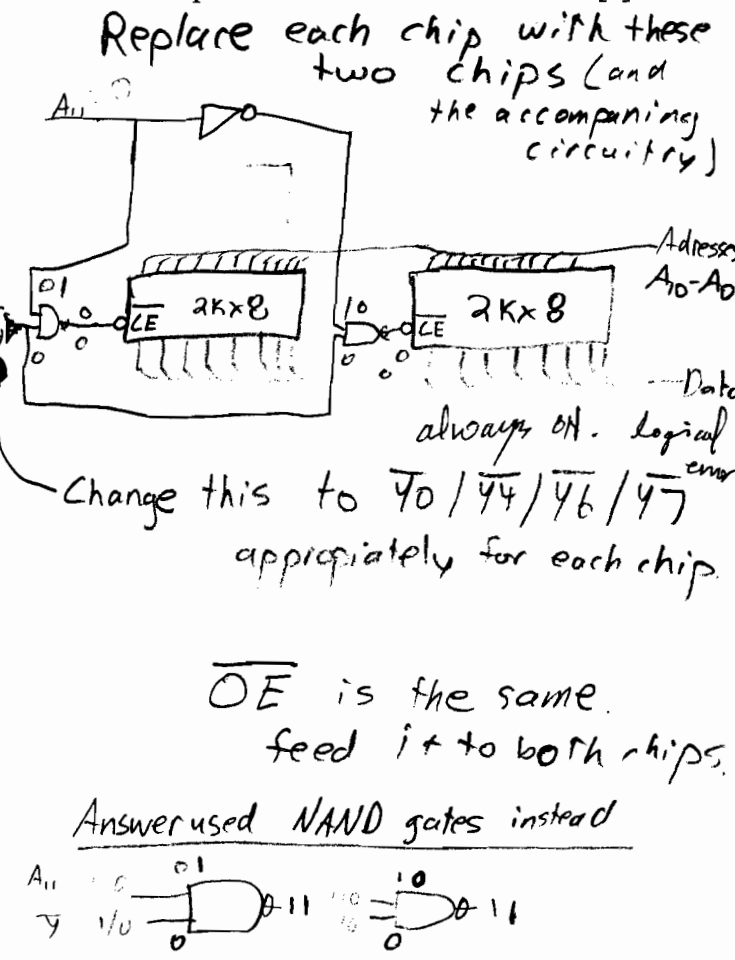 Replace each chip with these
two chips (and
the accompaning
circuitry)
A11 0
01
0
0
0
CE
2K×8
10
0
0
CE
2K×8
Adresses
A10-A0
Data
always ON. logical
error
Change this to Y0/Y4/Y6/Y7
appropiately for each chip.
OE is the same.
feed it to both chips.
Answer used NAND gates instead
A11 01 10
Y 1/0 11 11
0 0